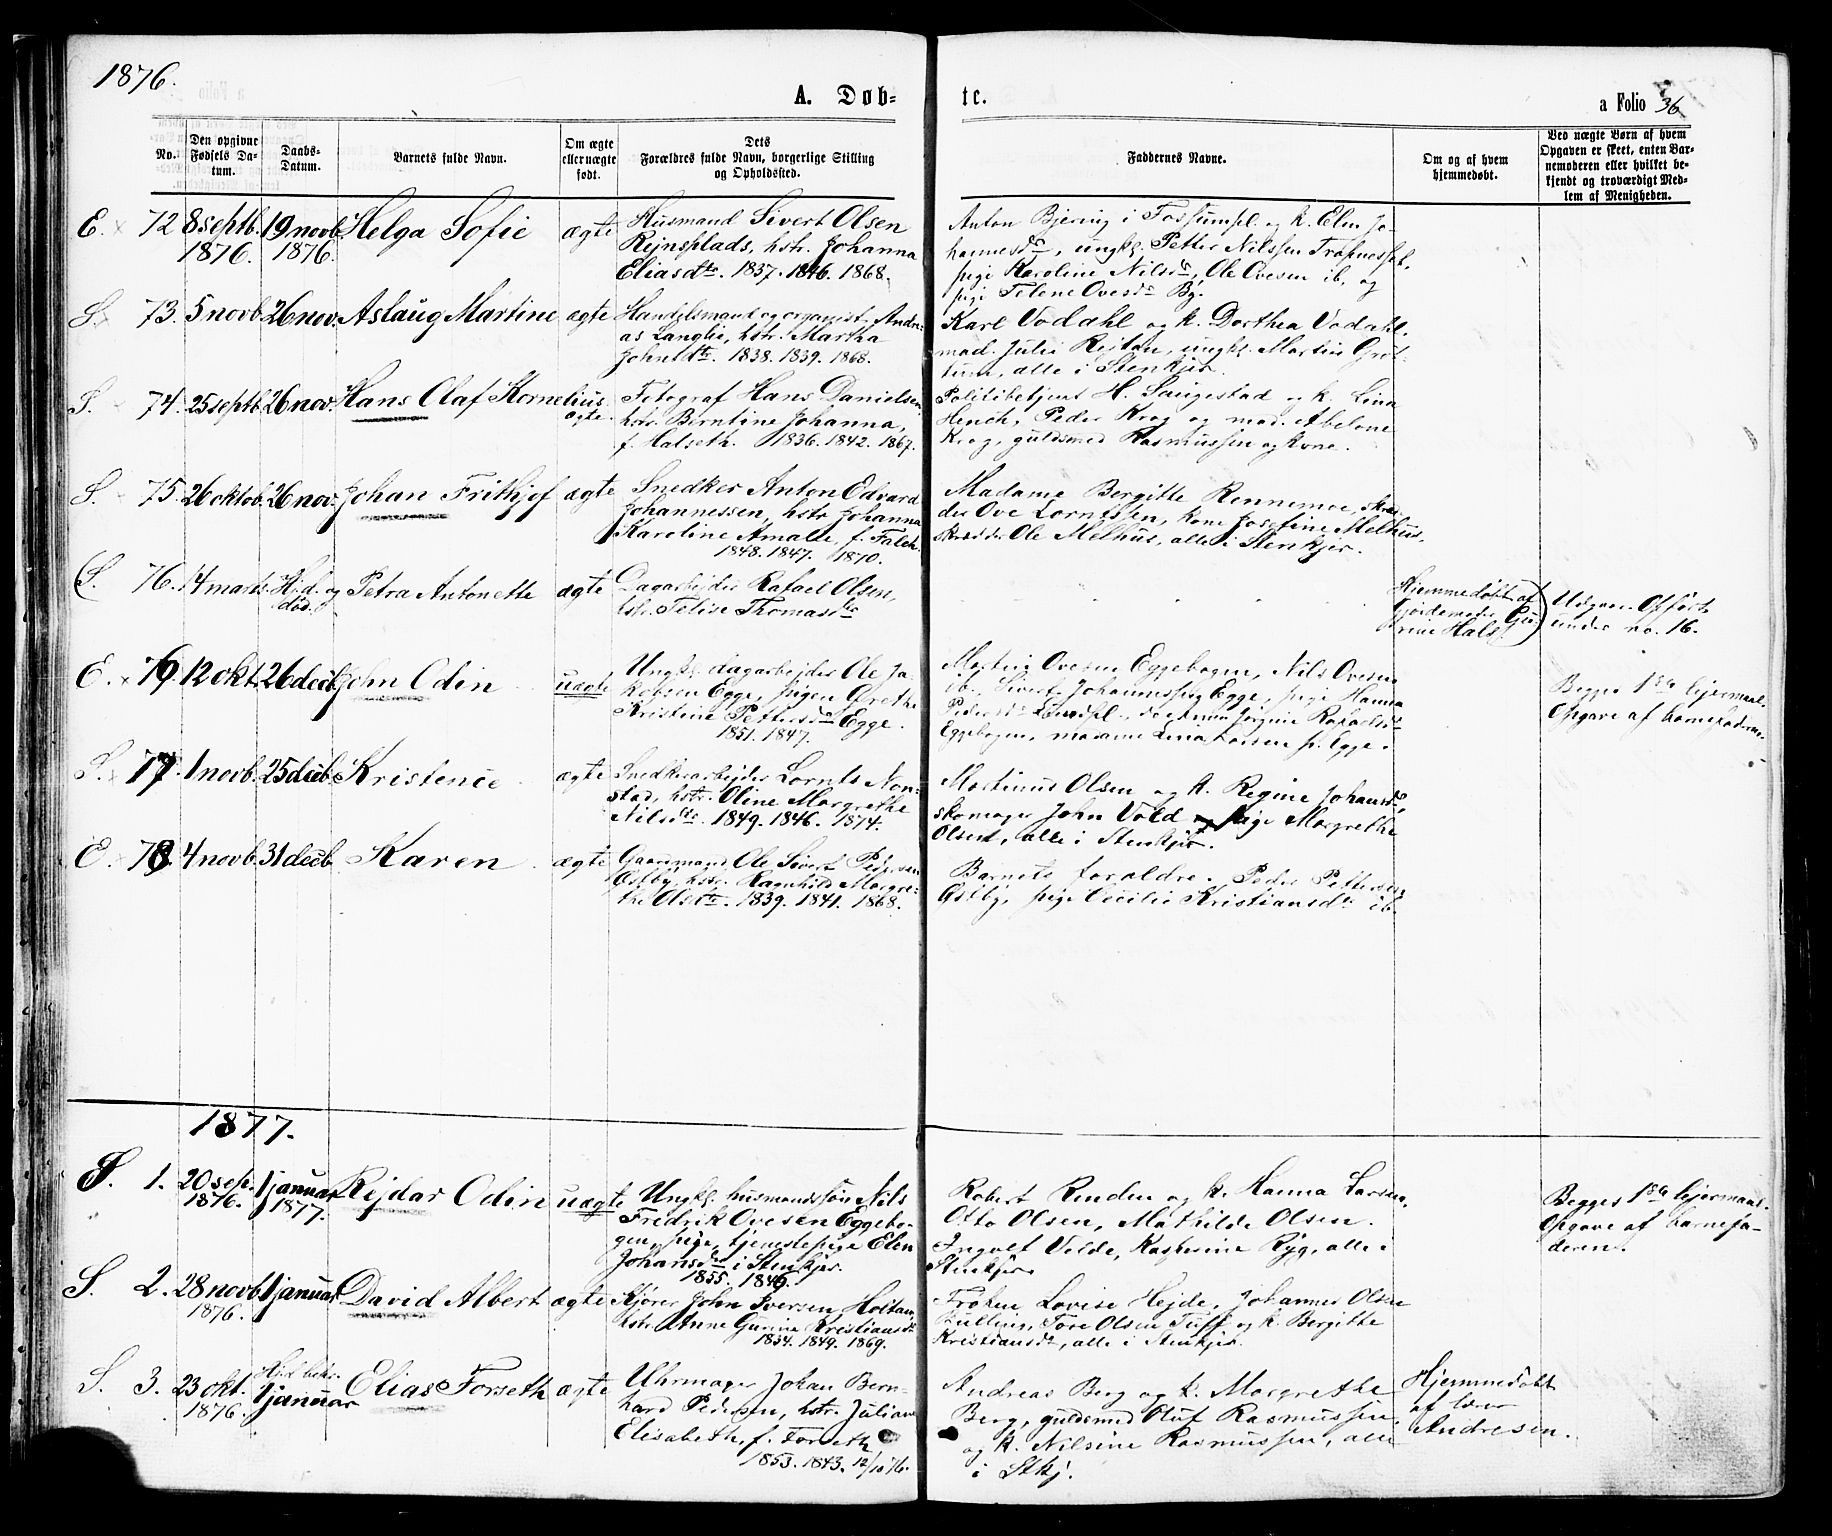 1876.
A. Døb=
te.
a Folio 36
No.
Den opgivne Fødsels Datum.
Daabs-Datum.
Barnets fulde Navn.
Om ægte eller uægte født.
Dets Forældres fulde Navn, borgerlige Stilling og Opholdssted.
Faddernes Navne.
Om og af hvem hjemmedøbt.
Ved uægte Børn af hvem Opgaven er skeet, enten Barnemoderen eller hvilket bekjendt og troværdigt Medlem af Menigheden.
E. 72 8 septb. 1876. 19 novb. 1876. Helga Sofie ægte
Husmand Sivert Olsen
Rejnsplads, hstr. Johanna
Eliasdtr. 1837. 1846. 1868.
Anton Bjering i Fossumpl. og k. Elen Jo-
hannesdr, ungk. Petter Nilssen
pige Karoline Nilsdr, Ole Ovesen ib. og
pige Telene Ovesdr By.
S. 73. 5 novb. 26 nov. Aslaug Martine ægte
Handelsmand og organist Andre-
as Langlie, hstr. Martha
Johnsdtr. 1838. 1839. 1868.
Karl Vodahl og k. Dorthea Vodahl.
mad. Julie Rejtan, ungk. Martin Grøt-
tum, alle i Stenkjer.
S. 74. 25 septb. 26 nov. Hans Olaf Kornelius ægte.
Fotograf Hans Danielsen
hstr. Berntine Johanna,
f. Halseth. 1836. 1842. 1867.
Politibetjent H. Saugestad og k. Lina
Hench, Peder Krog og mad. Abelone
Krog, guldsmed Rasmussen og kone.
S. 75. 26 oktob. 26 nov. Johan Frithjof ægte
Snedker Anton Edvard
Johannessen, hstr. Johanna
Karoline Amalie, f. Falch.
1848. 1847. 1870.
Madame Bergitte Rennemoe, skræd-
der Ove Lorntsen, kone Josefine Melhus,
skrædder Ole Melhus, alle i Stenkjer.
S. 76. 14 marts. H.d. og død. Petra Antonette ægte
Dagarbejder Rafael Olsen,
hstr. Feline Thomasdtr
Hjemmedøbt af
Gjordemoder Gu-
rine Hals
Udgaar. Opført
under no. 16.
E. 76 12 okt. 26 decb. John Odin uægte
Ungk. dagarbejder Ole Ja-
kobsen Egge, pigen Grethe
Kristine Pettersdr Egge.
1851. 1847.
Martin Ovesen Eggebogen, Nils Ovesen
ib., Sivert Johannessen Egge, pige Hanna
Pedersdr
Eggebogen, madame
Begges 1ste lejermaal.
Opgave af barnefaderen.
S. 77. 1 novb. 25 decb. Kristence ægte
Snedkerarbejder Lornts Non-
stad, hstr. Oline Margrethe
Nilsdtr. 1849. 1846. 1874.
Martinus Olsen og k. Regine Johansdr,
skomager John Vold, pige Margrethe
Olsen, alle i Stenkjer.
E. 78. 4 novb. 31 decb. Karen ægte
Gaardmand Ole Sivert Pedersen
Østby, hstr. Ragnhild Margre-
the Olsdtr. 1839. 1841. 1868.
Barnets forældre. Peder Pettersen
Østby, pige Cecilie Kristiansdr ib.
1877.
S. 1. 20 sep. 1876. 1 januar 1877. Rejdar Odin uægte
Ungk. husmandssøn Nils
Fredrik Ovesen Eggebo-
gen, pige, tjenestepige Elen
Johansdr i Stenkjer.
1855. 1846.
Robert Renden og k. Hanna Larsen,
Otto Olsen, Mathilde Olsen.
Ingvolt Velde, Katherine Ryg, alle i
Stenkjer.
Begges 1ste lejermaal.
Opgave af barnefa-
deren.
S. 2. 28 novb. 1876. 1 januar David Albert ægte
Kjører John Iversen Holtan,
hstr. Anne Gurine Kristiansdr
1834. 1849. 1869.
Frøken Lovise Hejde, Johannes Olsen
Tore Olsen Tuff og k. Bergitte
Kristiansdr, alle i Stenkjer.
S. 3. 23 okt. 1876. Hjd. bekr. 1 januar Elias Forseth ægte
Uhrmager Johan Bern-
hard Pedersen, hstr. Juliane
Elisabeth, f. Forseth
1853. 1843. 12/10 76.
Andreas Berg og k. Margrethe
Berg, guldsmed Oluf Rasmussen,
og k. Nilsine Rasmussen, alle
i Stkj.
Hjemmedøbt
af lærer
Andresen.